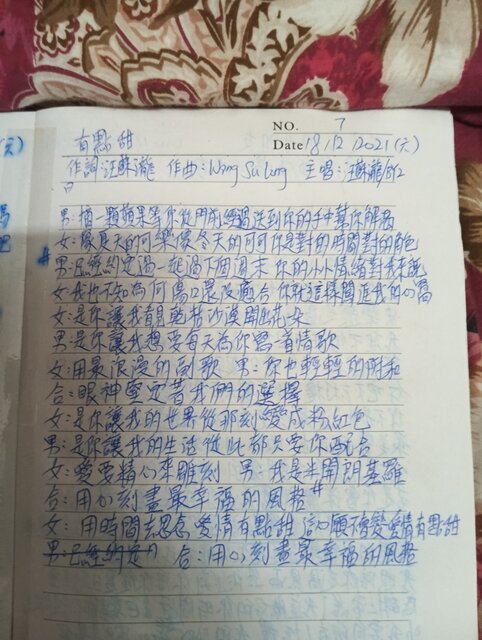 NO. 7
有點甜 Date 18 12 2021(六)
作詞:汪蘇瀧 作曲:Wang Su Lung 主唱:汪蘇瀧/BY2
男:摘一顆蘋果等你從門前經過送到你的手中幫你解渴
女:像夏天的可樂像冬天的可可你是對的時間對的角色
#男:已經約定過一起過下個週末 你的小小情緒對我來說
女:我也不知為何傷口還沒癒合 你就這樣闖進我的心窩
女:是你讓我看見乾枯沙漠開出花朵
男:是你讓我想要每天為你寫一首情歌
女:用最浪漫的副歌 男:你也輕輕的附和
合:眼神堅定著我們的選擇
女:是你讓我的世界從那刻變成粉紅色
男:是你讓我的生活從此都只要你配合
女:愛要精心來雕刻 男:我是米開朗基羅
合:用心刻畫最幸福的風格#
女:用時間去思念 愛情有點甜 這心願不會變愛情有點甜
男:已經約定 合:用心刻畫最幸福的風格